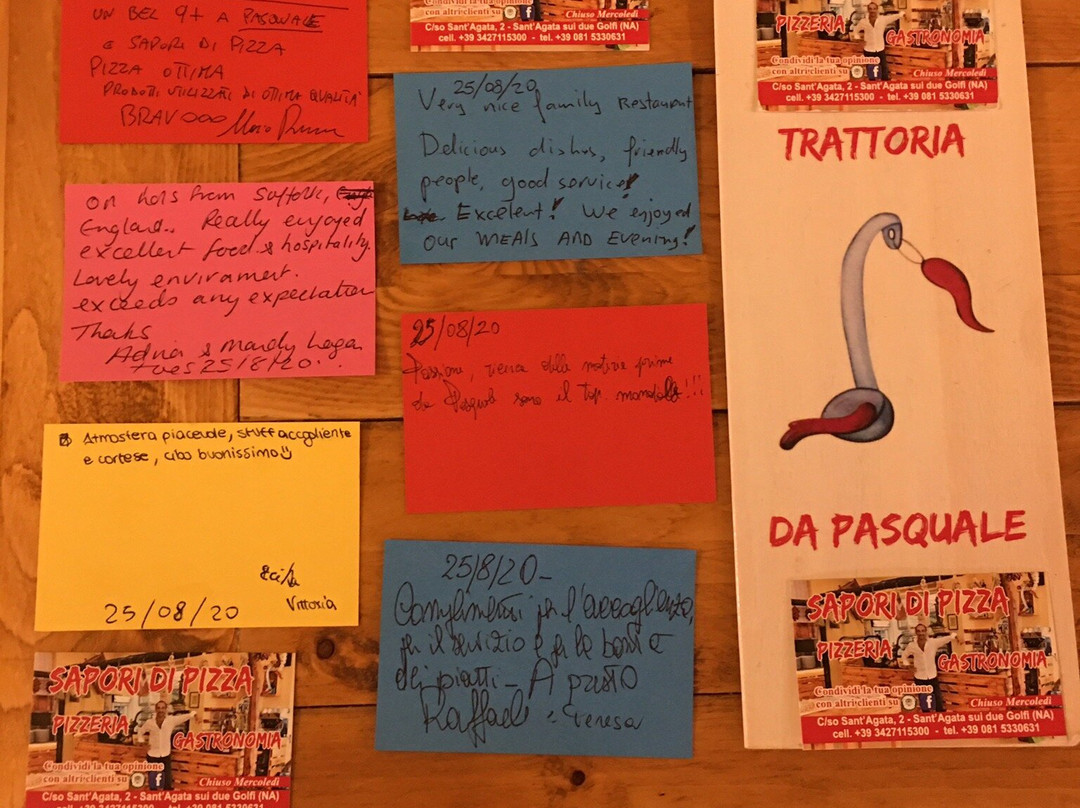 UN BEL 9+ A PASQUALE
E SAPORI DI PIZZA
PIZZA OTTIMA
PRODOTTI UTILIZZATI DI OTTIMA QUALITA'
BRAVOOO
Chiuso Mercoledì
C/so Sant'Agata, 2 - Sant'Agata sui due Golfi (NA)
cell. +39 3427115300 - tel. +39 081 5330631
25/08/20
Very nice family Restaurant
Delicious dishes, friendly
people, good service!
Excelent! We enjoyed
our MEALS AND Evening!
on hols from Suffolk,
England.. Really enjoyed
excellent food & hospitality.
Lovely envirament.
exceeds any expectation
Thanks
& Mandy Hogan
Tues 25/8/20.
25/08/20
Passione, ricerca delle materie prime
da Pasquale sono il top mondiale!!!
Atmosfera piacevole, staff accogliente
e cortese, cibo buonissimo
Vittoria
25/08/20
25/8/20-
Complimenti per l'accoglienza,
per il servizio e per la bontà
dei piatti- A presto
Raffaele e Teresa
SAPORI DI PIZZA
PIZZERIA
GASTRONOMIA
Condividi la tua opinione
con altri clienti su
Chiuso Mercoledì
C/so Sant'Agata, 2 - Sant'Agata sui due Golfi (NA)
cell. +39 3427115300 - tel. +39 081 5330631
PIZZERIA
GASTRONOMIA
Condividi la tua opinione
con altri clienti su
Chiuso Mercoledì
C/so Sant'Agata, 2 - Sant'Agata sui due Golfi (NA)
cell. +39 3427115300 - tel. +39 081 5330631
TRATTORIA
DA PASQUALE
SAPORI DI PIZZA
PIZZERIA
GASTRONOMIA
Condividi la tua opinione
con altri clienti su
Chiuso Mercoledì
C/so Sant'Agata, 2 - Sant'Agata sui due Golfi (NA)
cell. +39 3427115300 - tel. +39 081 5330631